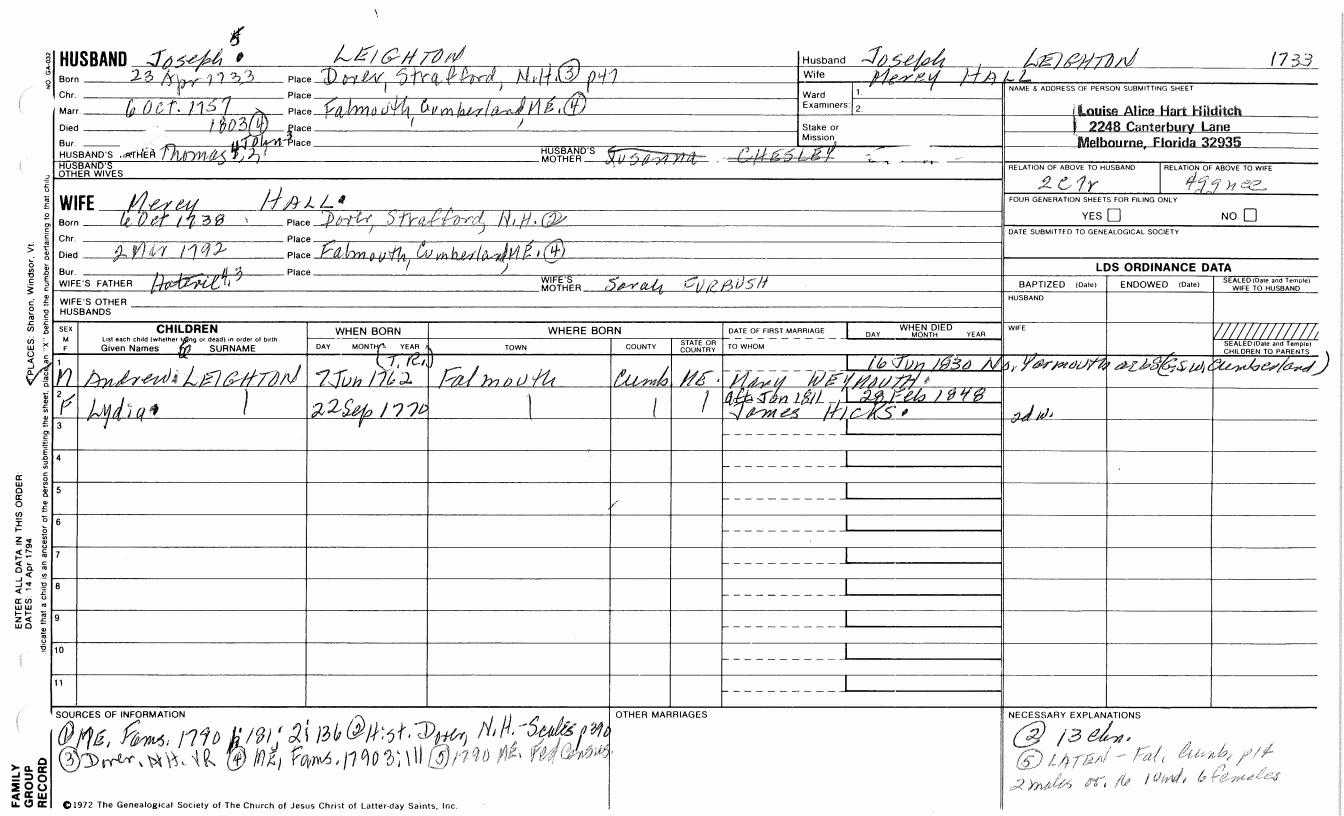 HUSBAND Joseph 5 LEIGHTON
Born 23 Apr 1733 Place Dover, Strafford, N.H. (3) p47
Chr. Place
Marr 6 Oct. 1757 Place Falmouth, Cumberland ME. (4)
Died 1803 (4) Place
Bur Place
HUSBAND'S FATHER Thomas 4 John 3 HUSBAND'S MOTHER Susanna CHESLEY
HUSBAND'S OTHER WIVES
WIFE Mercy HALL
Born 6 Oct 1738 Place Dover, Strafford, N.H. (2)
Chr. Place
Died 2 Mar 1792 Place Falmouth, Cumberland, ME. (4)
Bur. Place
WIFE'S FATHER Hateril 4,3 WIFE'S MOTHER Sarah FURBUSH
WIFE'S OTHER HUSBANDS
Husband Joseph LEIGHTON 1733
Wife Mercy HALL
Ward Examiners: 1.
2.
Stake or Mission
NAME & ADDRESS OF PERSON SUBMITTING SHEET
Louise Alice Hart Hilditch
2248 Canterbury Lane
Melbourne, Florida 32935
RELATION OF ABOVE TO HUSBAND RELATION OF ABOVE TO WIFE
2C7r 4ggnce
FOUR GENERATION SHEETS FOR FILING ONLY
YES NO
DATE SUBMITTED TO GENEALOGICAL SOCIETY
LDS ORDINANCE DATA
BAPTIZED (Date) ENDOWED (Date) SEALED (Date and Temple) WIFE TO HUSBAND
HUSBAND
WIFE
SEALED (Date and Temple) CHILDREN TO PARENTS
SEX M F CHILDREN WHEN BORN WHERE BORN DATE OF FIRST MARRIAGE WHEN DIED
List each child (whether living or dead) in order of birth
Given Names SURNAME DAY MONTH YEAR TOWN COUNTY STATE OR COUNTRY TO WHOM DAY MONTH YEAR
(T.R.) 16 Jun 1830 No. Yarmouth
1 M Andrew LEIGHTON 7 Jun 1762 Falmouth Cumb. ME. Mary WEYMOUTH
aft Jan 1811 28 Feb 1848
2 F Lydia 22 Sep 1770 James HICKS 2d w.
3
4
5
6
7
8
9
10
11
SOURCES OF INFORMATION
(1) ME. Fams. 1790 1; 181; 2; 136 (2) Hist. Dover, N.H.-Scales p 390
(3) Dover, N.H. VR (4) ME, Fams. 1790 3; 111 (5) 1790 ME. Fed Census
OTHER MARRIAGES
NECESSARY EXPLANATIONS
(2) 13 chn.
(5) LATEN - Fal, Cumb, p14
2 males ov. 16 1 und. 6 females
©1972 The Genealogical Society of The Church of Jesus Christ of Latter-day Saints, Inc.
NO GA-032
PLACES: Sharon, Windsor, Vt.
ENTER ALL DATA IN THIS ORDER
DATES: 14 Apr 1794
FAMILY GROUP RECORD